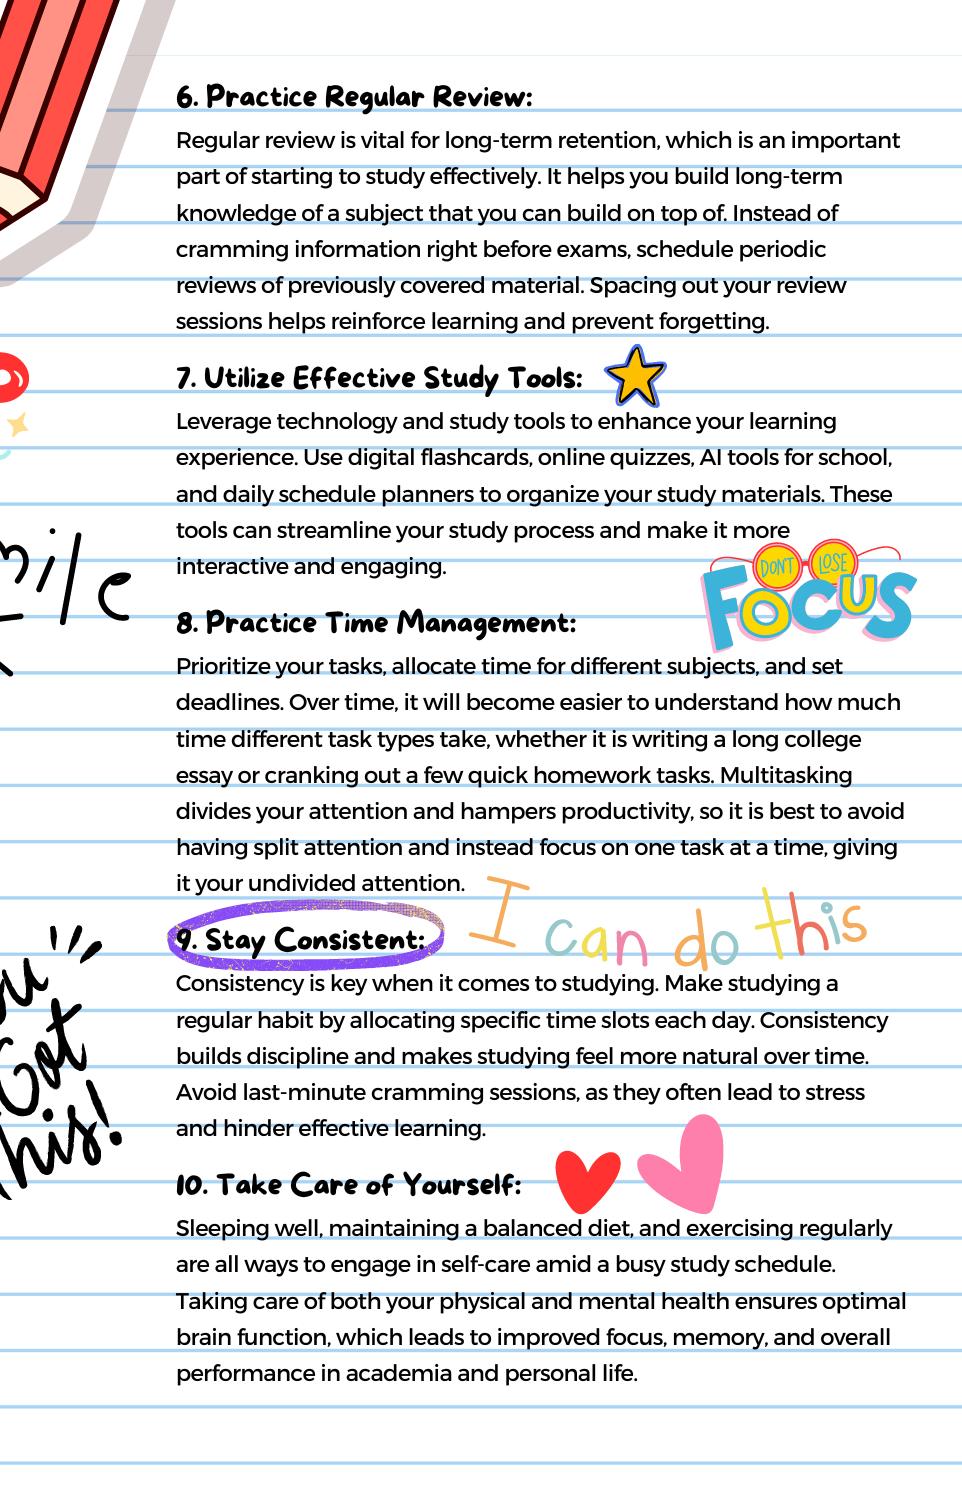 6. Practice Regular Review:
Regular review is vital for long-term retention, which is an important
part of starting to study effectively. It helps you build long-term
knowledge of a subject that you can build on top of. Instead of
cramming information right before exams, schedule periodic
reviews of previously covered material. Spacing out your review
sessions helps reinforce learning and prevent forgetting.
7. Utilize Effective Study Tools:
Leverage technology and study tools to enhance your learning
experience. Use digital flashcards, online quizzes, AI tools for school,
and daily schedule planners to organize your study materials. These
tools can streamline your study process and make it more
interactive and engaging.
DON'T LOSE
FOCUS
8. Practice Time Management:
Prioritize your tasks, allocate time for different subjects, and set
deadlines. Over time, it will become easier to understand how much
time different task types take, whether it is writing a long college
essay or cranking out a few quick homework tasks. Multitasking
divides your attention and hampers productivity, so it is best to avoid
having split attention and instead focus on one task at a time, giving
it your undivided attention.
9. Stay Consistent:
I can do this
Consistency is key when it comes to studying. Make studying a
regular habit by allocating specific time slots each day. Consistency
builds discipline and makes studying feel more natural over time.
Avoid last-minute cramming sessions, as they often lead to stress
and hinder effective learning.
Got
10. Take Care of Yourself:
Sleeping well, maintaining a balanced diet, and exercising regularly
are all ways to engage in self-care amid a busy study schedule.
Taking care of both your physical and mental health ensures optimal
brain function, which leads to improved focus, memory, and overall
performance in academia and personal life.